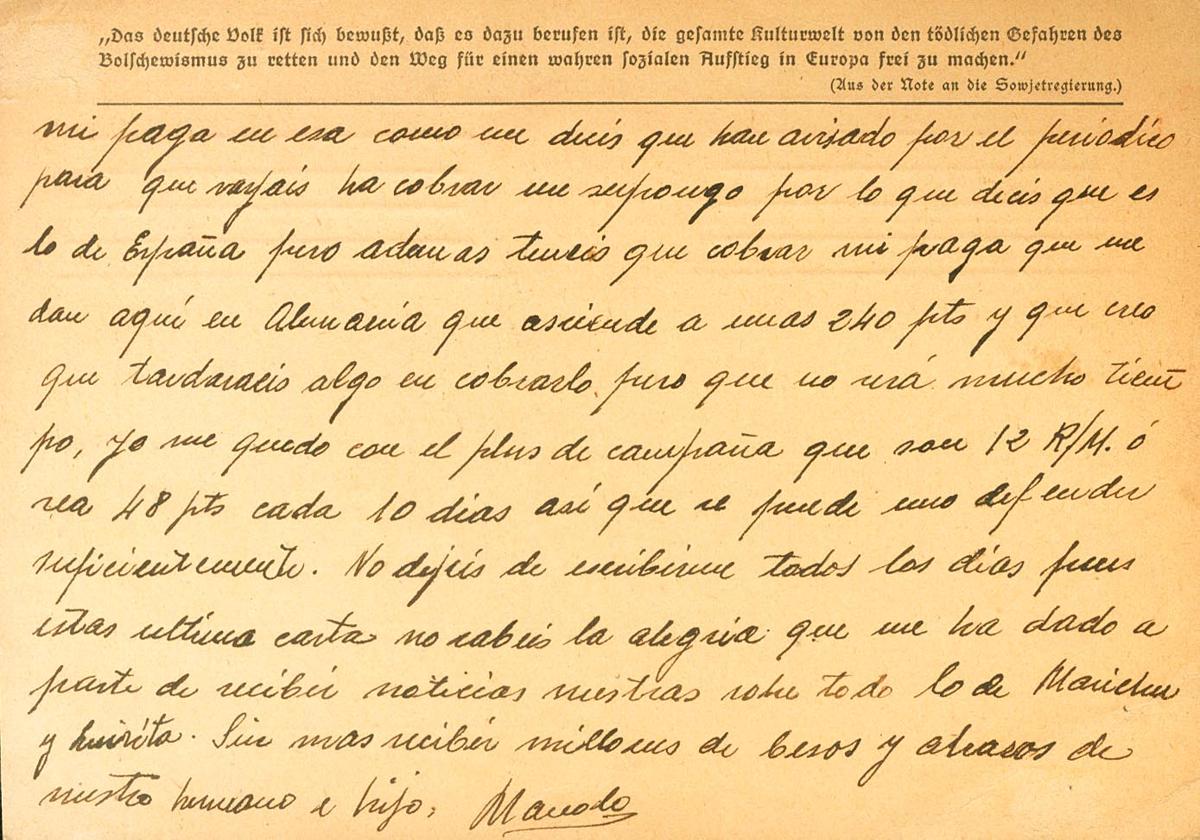 „Das deutsche Volk ist sich bewußt, daß es dazu berufen ist, die gesamte Kulturwelt von den tödlichen Gefahren des
Bolschewismus zu retten und den Weg für einen wahren sozialen Aufstieg in Europa frei zu machen.“
(Aus der Note an die Sowjetregierung.)
mi paga en esa como me decis que han avisado por el periodico
para que vayais ha cobrar me supongo por lo que decis que es
lo de España pero ademas teneis que cobrar mi paga que me
dan aquí en Alemania que asciende a unas 240 pts y que creo
que tardareis algo en cobrarlo pero que no será mucho tiem
po, yo me quedo con el plus de campaña que son 12 R/M. ó
sea 48 pts cada 10 dias así que se puede uno defender
suficientemente. No dejeis de escribirme todos los días pues
estas ultima carta no sabeis la alegria que me ha dado a
parte de recibir noticias vuestras sobre todo lo de Marichu
y . Sin mas recibir millones de besos y abrazos de
vuestro hermano e hijo, Manolo